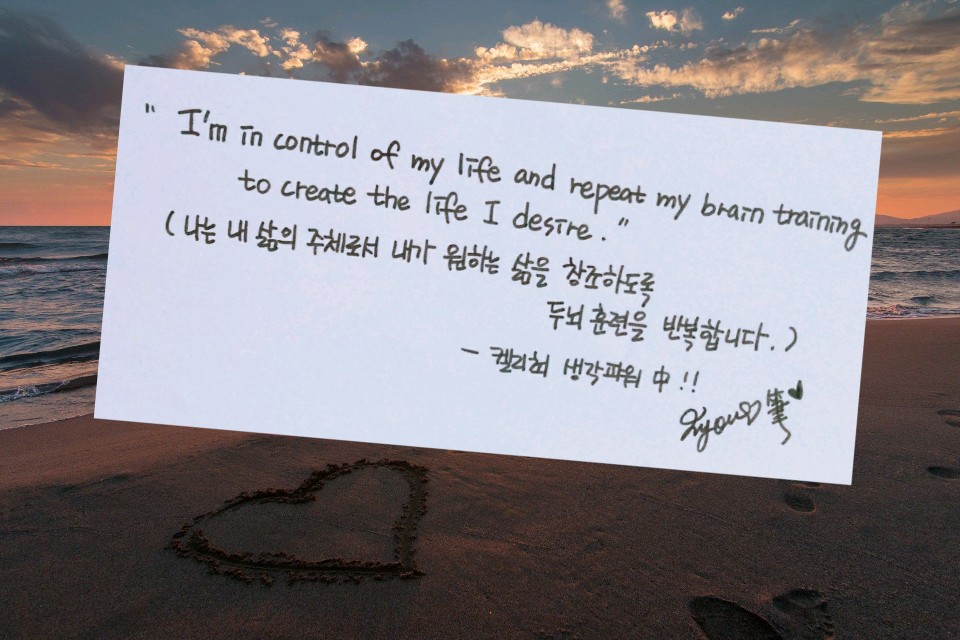 " I'm in control of my life and repeat my brain training
to create the life I desire."
(나는 내 삶의 주체로서 내가 원하는 삶을 창조하도록
두뇌 훈련을 반복합니다.)
- 켈리최 생각파워 中 !!